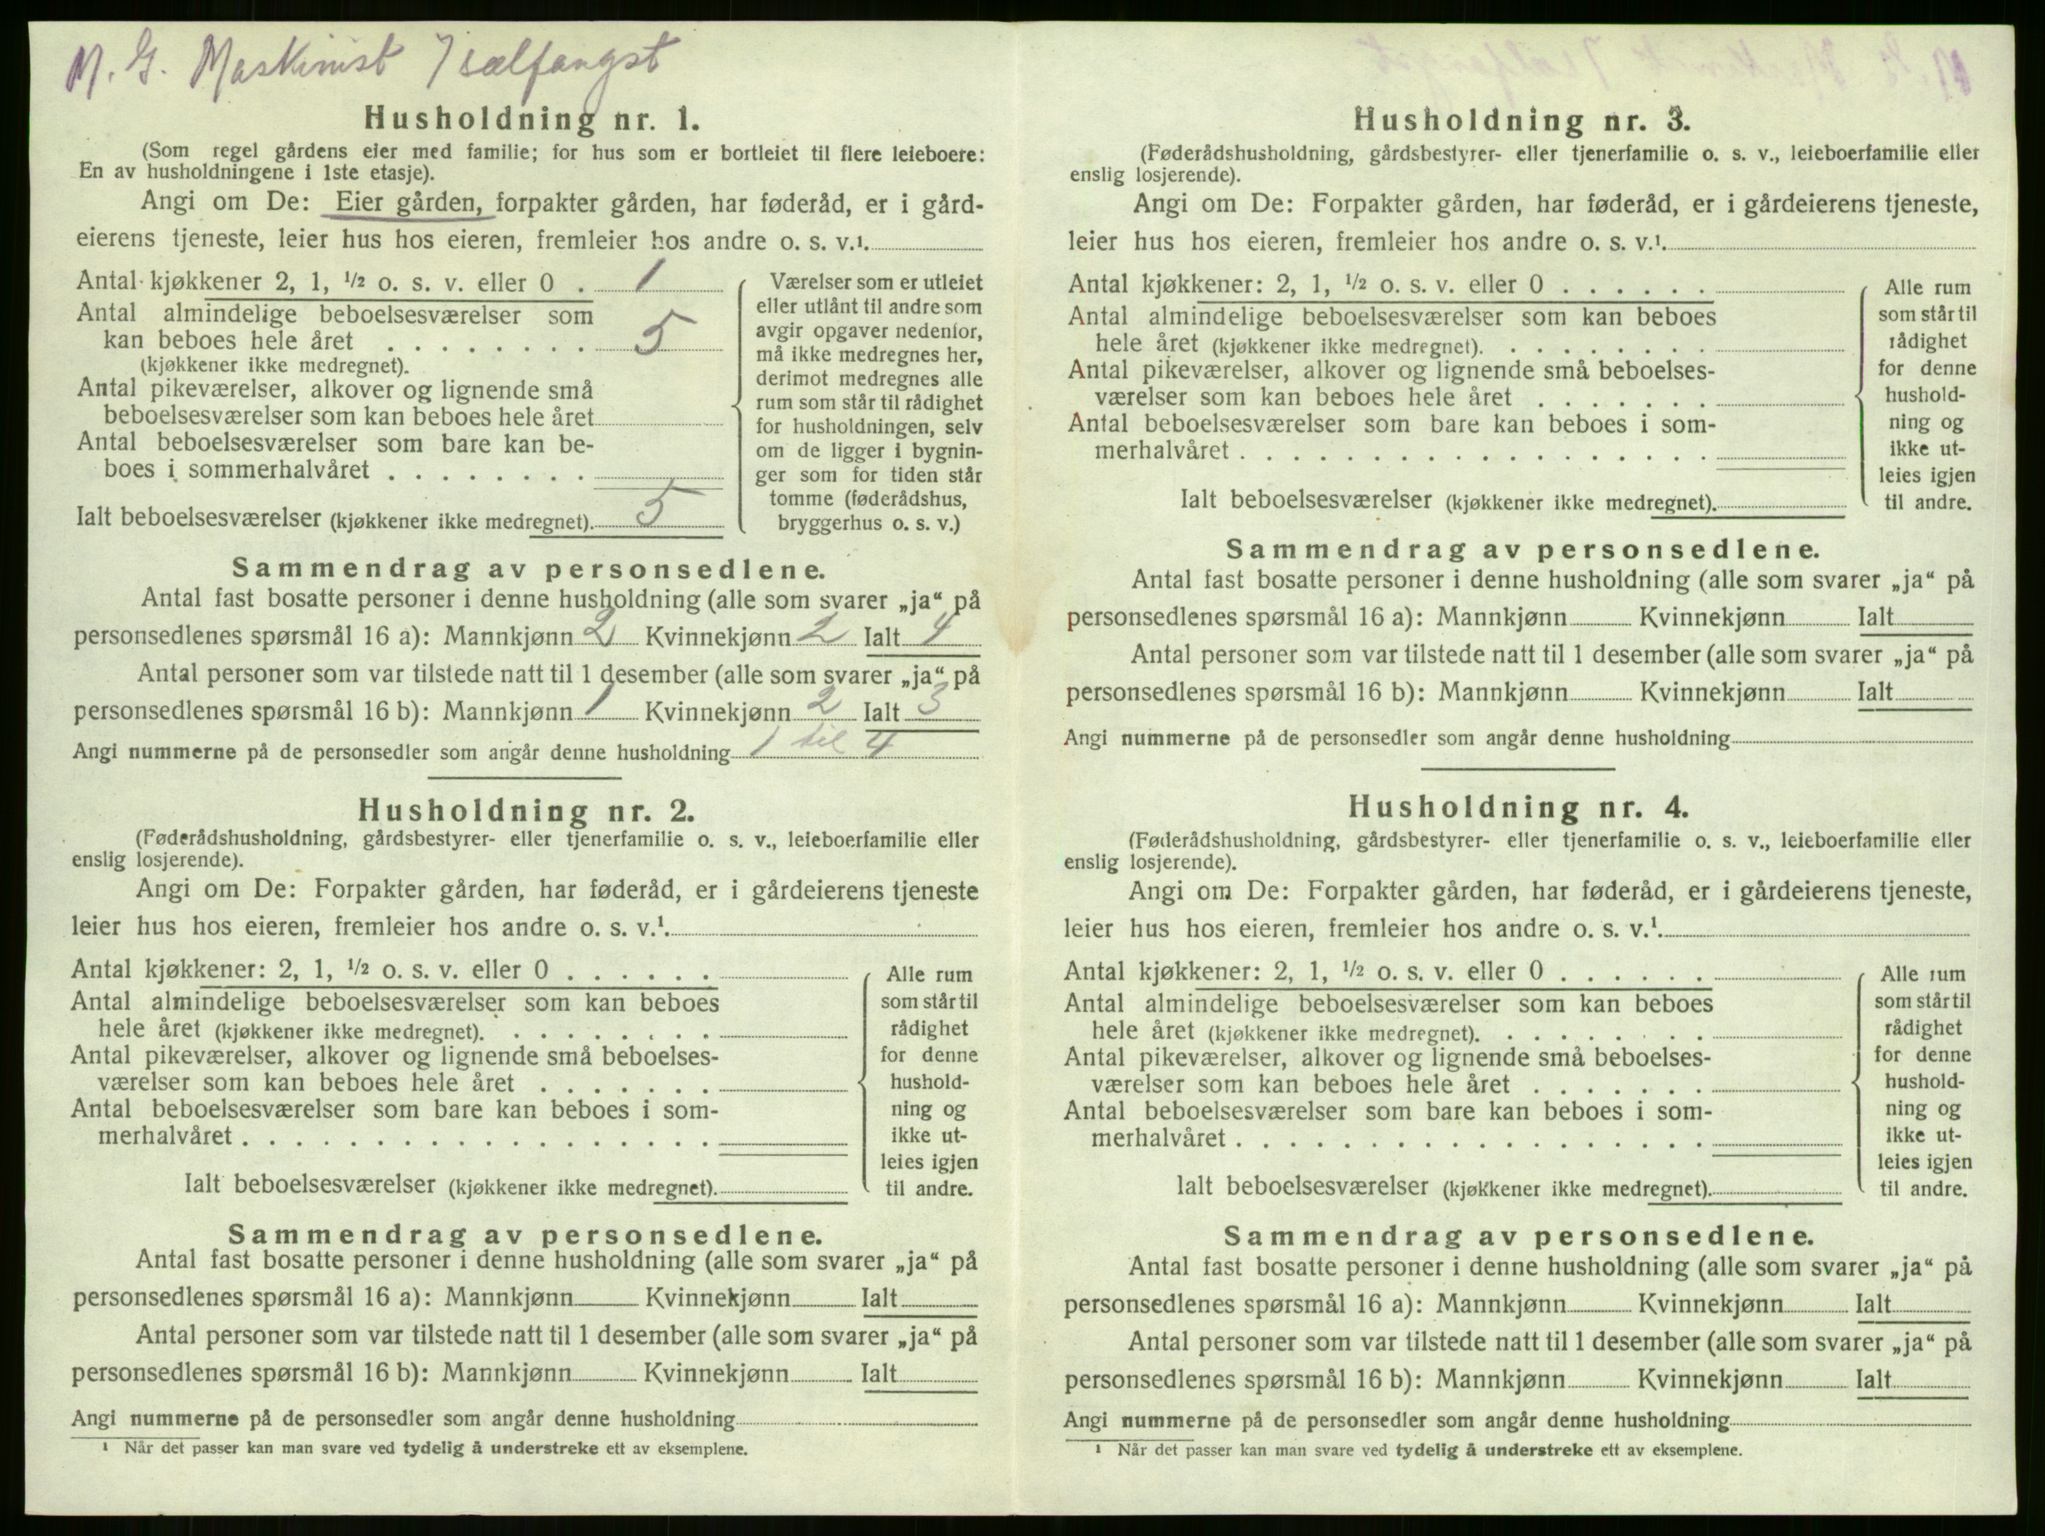 M. G. Maskinist 7 sælfangst
Husholdning nr. 1.
(Som regel gårdens eier med familie; for hus som er bortleiet til flere leieboere:
En av husholdningene i 1ste etasje).
Angi om De: Eier gården, forpakter gården, har føderåd, er i gård-
eierens tjeneste, leier hus hos eieren, fremleier hos andre o. s. v.¹
Antal kjøkkener 2, 1, ½ o. s. v. eller 0 . 1
Antal almindelige beboelsesværelser som
kan beboes hele året . . . . . . . . 5
(kjøkkener ikke medregnet).
Antal pikeværelser, alkover og lignende små
beboelsesværelser som kan beboes hele året
Antal beboelsesværelser som bare kan be-
boes i sommerhalvåret . . . . . . . .
Ialt beboelsesværelser (kjøkkener ikke medregnet). 5
Værelser som er utleiet
eller utlånt til andre som
avgir opgaver nedenfor,
må ikke medregnes her,
derimot medregnes alle
rum som står til rådighet
for husholdningen, selv
om de ligger i bygnin-
ger som for tiden står
tomme (føderådshus,
bryggerhus o. s. v.)
Sammendrag av personsedlene.
Antal fast bosatte personer i denne husholdning (alle som svarer „ja“ på
personsedlenes spørsmål 16 a): Mannkjønn 2 Kvinnekjønn 2 Ialt 4
Antal personer som var tilstede natt til 1 desember (alle som svarer „ja“ på
personsedlenes spørsmål 16 b): Mannkjønn 1 Kvinnekjønn 2 Ialt 3
Angi nummerne på de personsedler som angår denne husholdning 1 til 4
Husholdning nr. 2.
(Føderådshusholdning, gårdsbestyrer- eller tjenerfamilie o. s. v., leieboerfamilie eller
enslig losjerende).
Angi om De: Forpakter gården, har føderåd, er i gårdeierens tjeneste
leier hus hos eieren, fremleier hos andre o. s. v.¹
Antal kjøkkener: 2, 1, ½ o. s. v. eller 0 . . . . . .
Antal almindelige beboelsesværelser som kan beboes
hele året (kjøkkener ikke medregnet). . . . . . . .
Antal pikeværelser, alkover og lignende små beboelses-
værelser som kan beboes hele året . . . . . . .
Antal beboelsesværelser som bare kan beboes i som-
merhalvåret . . . . . . . . . . . . . . . . . .
Ialt beboelsesværelser (kjøkkener ikke medregnet).
Alle rum
som står til
rådighet
for denne
hushold-
ning og
ikke ut-
leies igjen
til andre.
Sammendrag av personsedlene.
Antal fast bosatte personer i denne husholdning (alle som svarer „ja“ på
personsedlenes spørsmål 16 a): Mannkjønn Kvinnekjønn Ialt
Antal personer som var tilstede natt til 1 desember (alle som svarer „ja“ på
personsedlenes spørsmål 16 b): Mannkjønn Kvinnekjønn Ialt
Angi nummerne på de personsedler som angår denne husholdning
¹ Når det passer kan man svare ved tydelig å understreke ett av eksemplene.
Husholdning nr. 3.
(Føderådshusholdning, gårdsbestyrer- eller tjenerfamilie o. s. v., leieboerfamilie eller
enslig losjerende).
Angi om De: Forpakter gården, har føderåd, er i gårdeierens tjeneste,
leier hus hos eieren, fremleier hos andre o. s. v.¹
Antal kjøkkener: 2, 1, ½ o. s. v. eller 0 . . . . . .
Antal almindelige beboelsesværelser som kan beboes
hele året (kjøkkener ikke medregnet). . . . . . . .
Antal pikeværelser, alkover og lignende små beboelses-
værelser som kan beboes hele året . . . . . . .
Antal beboelsesværelser som bare kan beboes i som-
merhalvåret . . . . . . . . . . . . . . . . . .
Ialt beboelsesværelser (kjøkkener ikke medregnet).
Alle rum
som står til
rådighet
for denne
hushold-
ning og
ikke ut-
leies igjen
til andre.
Sammendrag av personsedlene.
Antal fast bosatte personer i denne husholdning (alle som svarer „ja“ på
personsedlenes spørsmål 16 a): Mannkjønn Kvinnekjønn Ialt
Antal personer som var tilstede natt til 1 desember (alle som svarer „ja“ på
personsedlenes spørsmål 16 b): Mannkjønn Kvinnekjønn Ialt
Angi nummerne på de personsedler som angår denne husholdning
Husholdning nr. 4.
(Føderådshusholdning, gårdsbestyrer- eller tjenerfamilie o. s. v., leieboerfamilie eller
enslig losjerende).
Angi om De: Forpakter gården, har føderåd, er i gårdeierens tjeneste,
leier hus hos eieren, fremleier hos andre o. s. v.¹
Antal kjøkkener: 2, 1, ½ o. s. v. eller 0 . . . . . .
Antal almindelige beboelsesværelser som kan beboes
hele året (kjøkkener ikke medregnet). . . . . . . .
Antal pikeværelser, alkover og lignende små beboelses-
værelser som kan beboes hele året . . . . . . .
Antal beboelsesværelser som bare kan beboes i som-
merhalvåret . . . . . . . . . . . . . . . . . .
Ialt beboelsesværelser (kjøkkener ikke medregnet).
Alle rum
som står til
rådighet
for denne
hushold-
ning og
ikke ut-
leies igjen
til andre.
Sammendrag av personsedlene.
Antal fast bosatte personer i denne husholdning (alle som svarer „ja“ på
personsedlenes spørsmål 16 a): Mannkjønn Kvinnekjønn Ialt
Antal personer som var tilstede natt til 1 desember (alle som svarer „ja“ på
personsedlenes spørsmål 16 b): Mannkjønn Kvinnekjønn Ialt
Angi nummerne på de personsedler som angår denne husholdning
¹ Når det passer kan man svare ved tydelig å understreke ett av eksemplene.